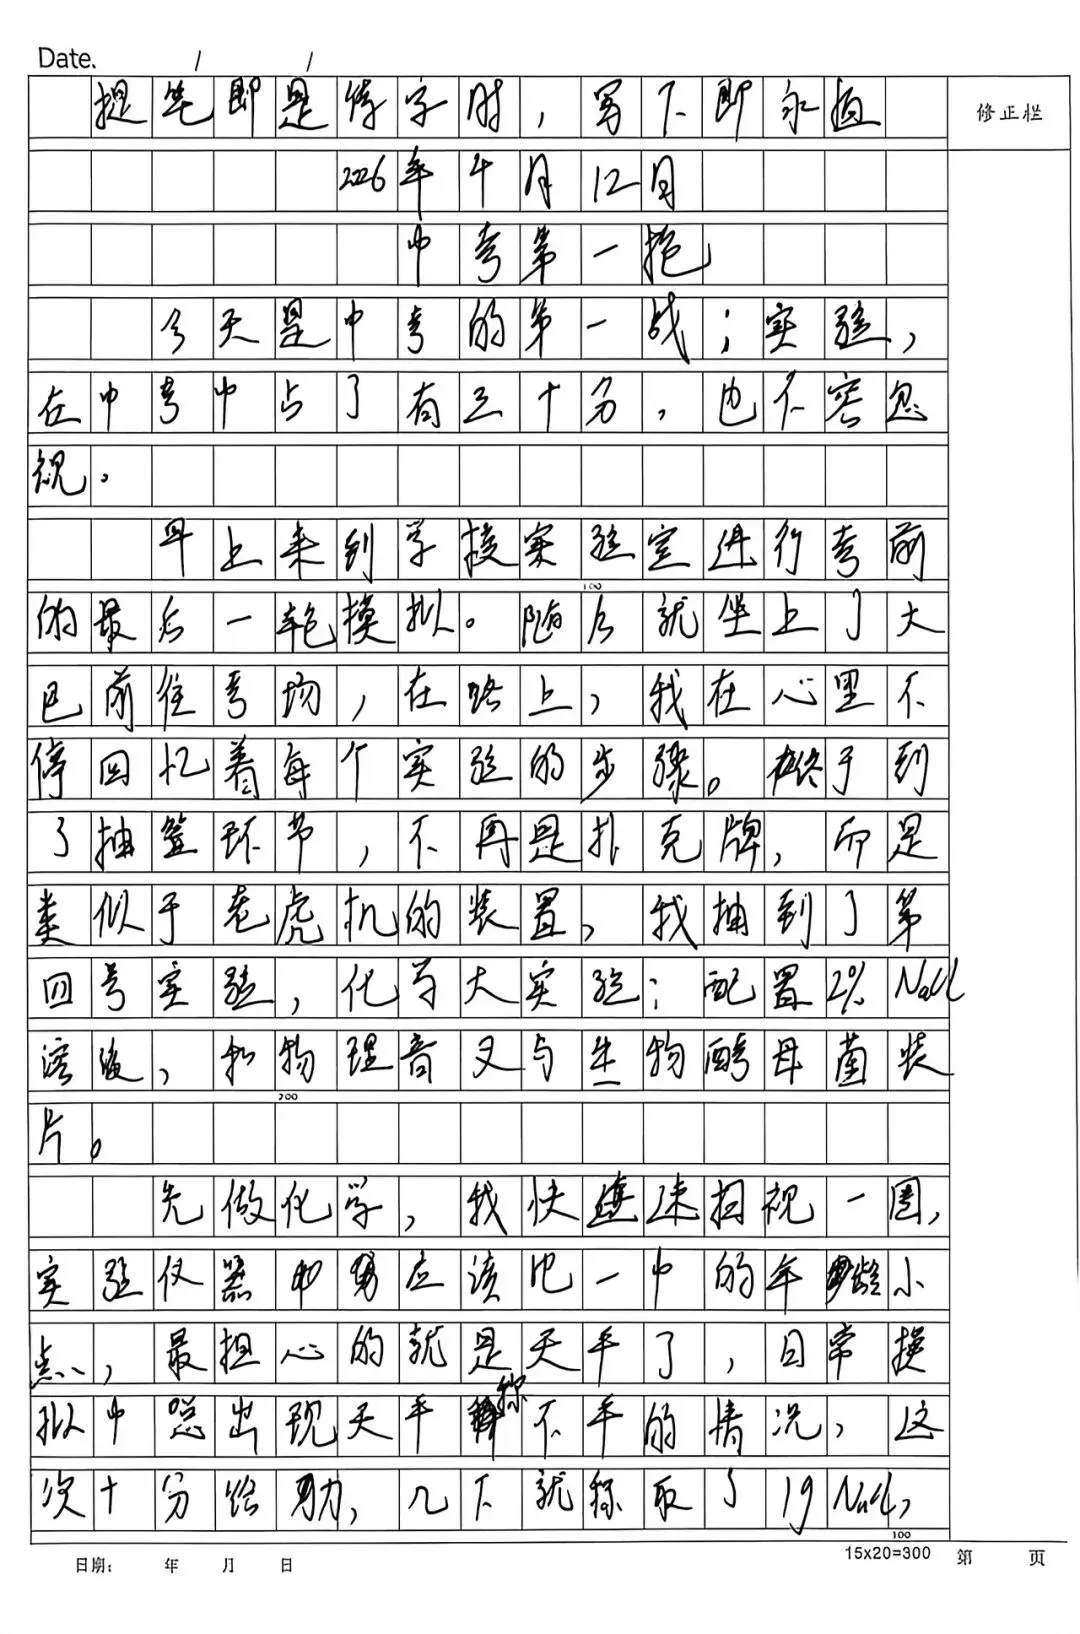 Date. / /
提笔即是练字时，写下即永恒
修正栏
2026年4月12日
中考第一枪
今天是中考的第一战；实验，
在中考中占了有三十分，也不容忽
视。
早上来到学校实验室进行考前
100
的最后一轮模拟。随后就坐上了大
巴前往考场，在路上，我在心里不
停回忆着每个实验的步骤。终于到
了抽签环节，不再是扑克牌，而是
类似于老虎机的装置，我抽到了第
四号实验，化学大实验：配置2%NaCl
溶液，和物理音叉与生物酵母菌装
200
片。
先做化学，我快速扫视一圈，
实验仪器应该比一中的年龄小
点，最担心的就是天平了，日常模
拟中总出现天平称不平的情况，这
次十分给力，几下就称取了19NaCl，
300
日期： 年 月 日
15x20=300 第 页